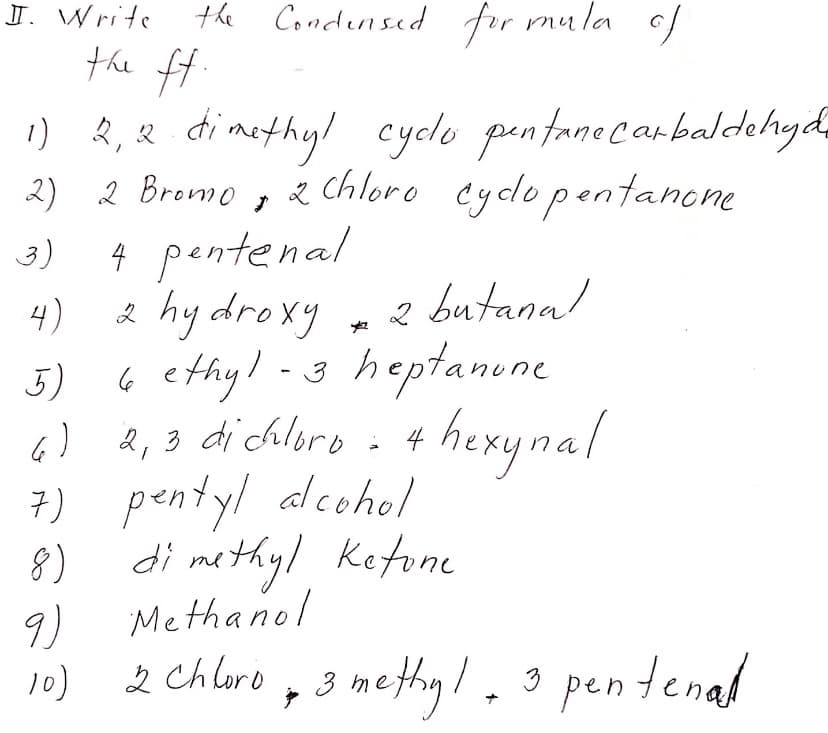 II. Write the Condensed formula of
the ff.
1) 2,2 dimethyl cyclo pentanecarbaldehyde
2) 2 Bromo, 2 Chloro cyclopentanone
3) 4 pentenal
4) 2 hydroxy - 2 butanal
5) 6 ethyl - 3 heptanone
6) 2,3 dichloro - 4 hexynal
7) pentyl alcohol
8) dimethyl Ketone
9) Methanol
10) 2 Chloro, 3 methyl - 3 pentenal